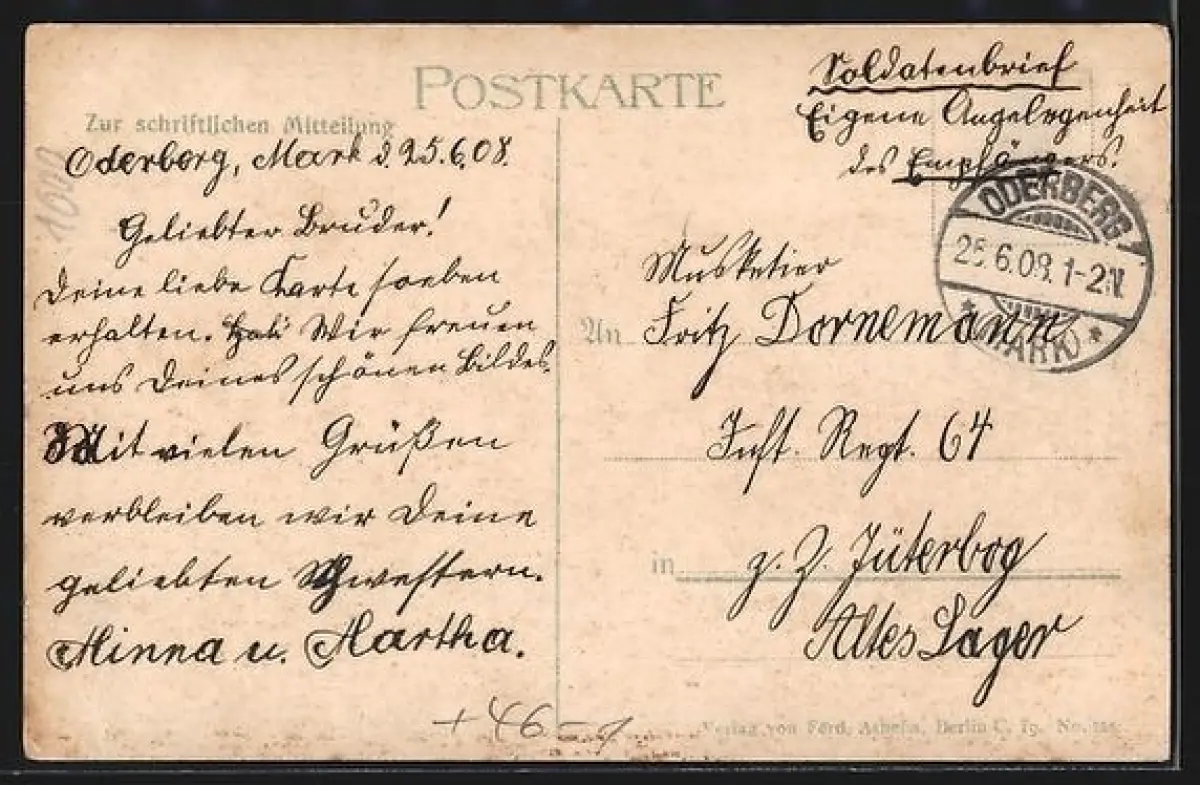 POSTKARTE
Zur schriftlichen Mitteilung
Oderberg, Mark d. 25.6.08.
Geliebter Bruder!
Deine liebe Karte soeben
erhalten. Wir freuen
uns Deines schönen Bildes.
Mit vielen Grüßen
verbleiben wir Deine
geliebten Schwestern.
Minna u. Martha.
Soldatenbrief
Eigene Angelegenheit
des Empfängers!
ODERBERG
25.6.08. 1-2 N.
* (MARK) *
Musketier
An Fritz Dornemann
Inft. Regt. 64
in z. Z. Jüterbog
Altes Lager
Verlag von Ferd. Ashelm, Berlin C, 19. No.
1000
+ 46